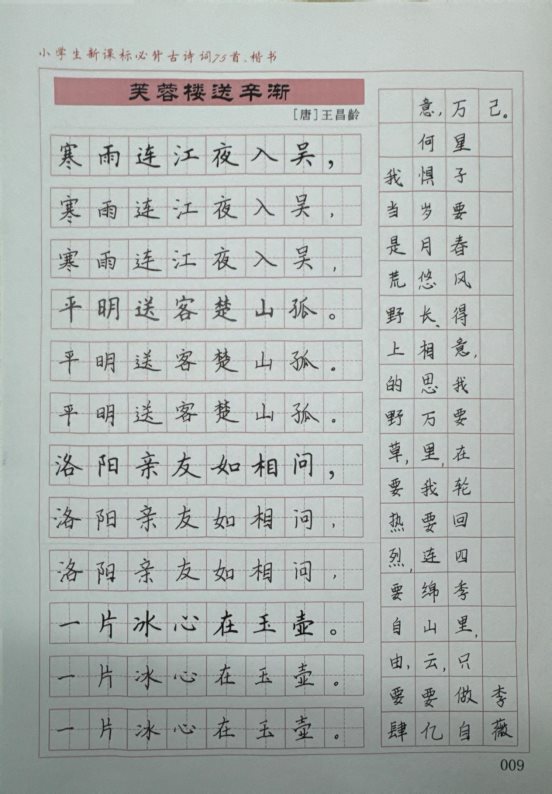 小学生新课标必背古诗词75首·楷书
芙蓉楼送辛渐
[唐]王昌龄
寒雨连江夜入吴，
寒雨连江夜入吴，
寒雨连江夜入吴，
平明送客楚山孤。
平明送客楚山孤。
平明送客楚山孤。
洛阳亲友如相问，
洛阳亲友如相问，
洛阳亲友如相问，
一片冰心在玉壶。
一片冰心在玉壶。
一片冰心在玉壶。
我当是荒野上的野草，要热烈，要自由，要肆
意，何惧岁月悠长、相思万里，我要连绵山云，要亿
万星子要春风得意，我要在轮回四季里，只做自
己。
李薇
009